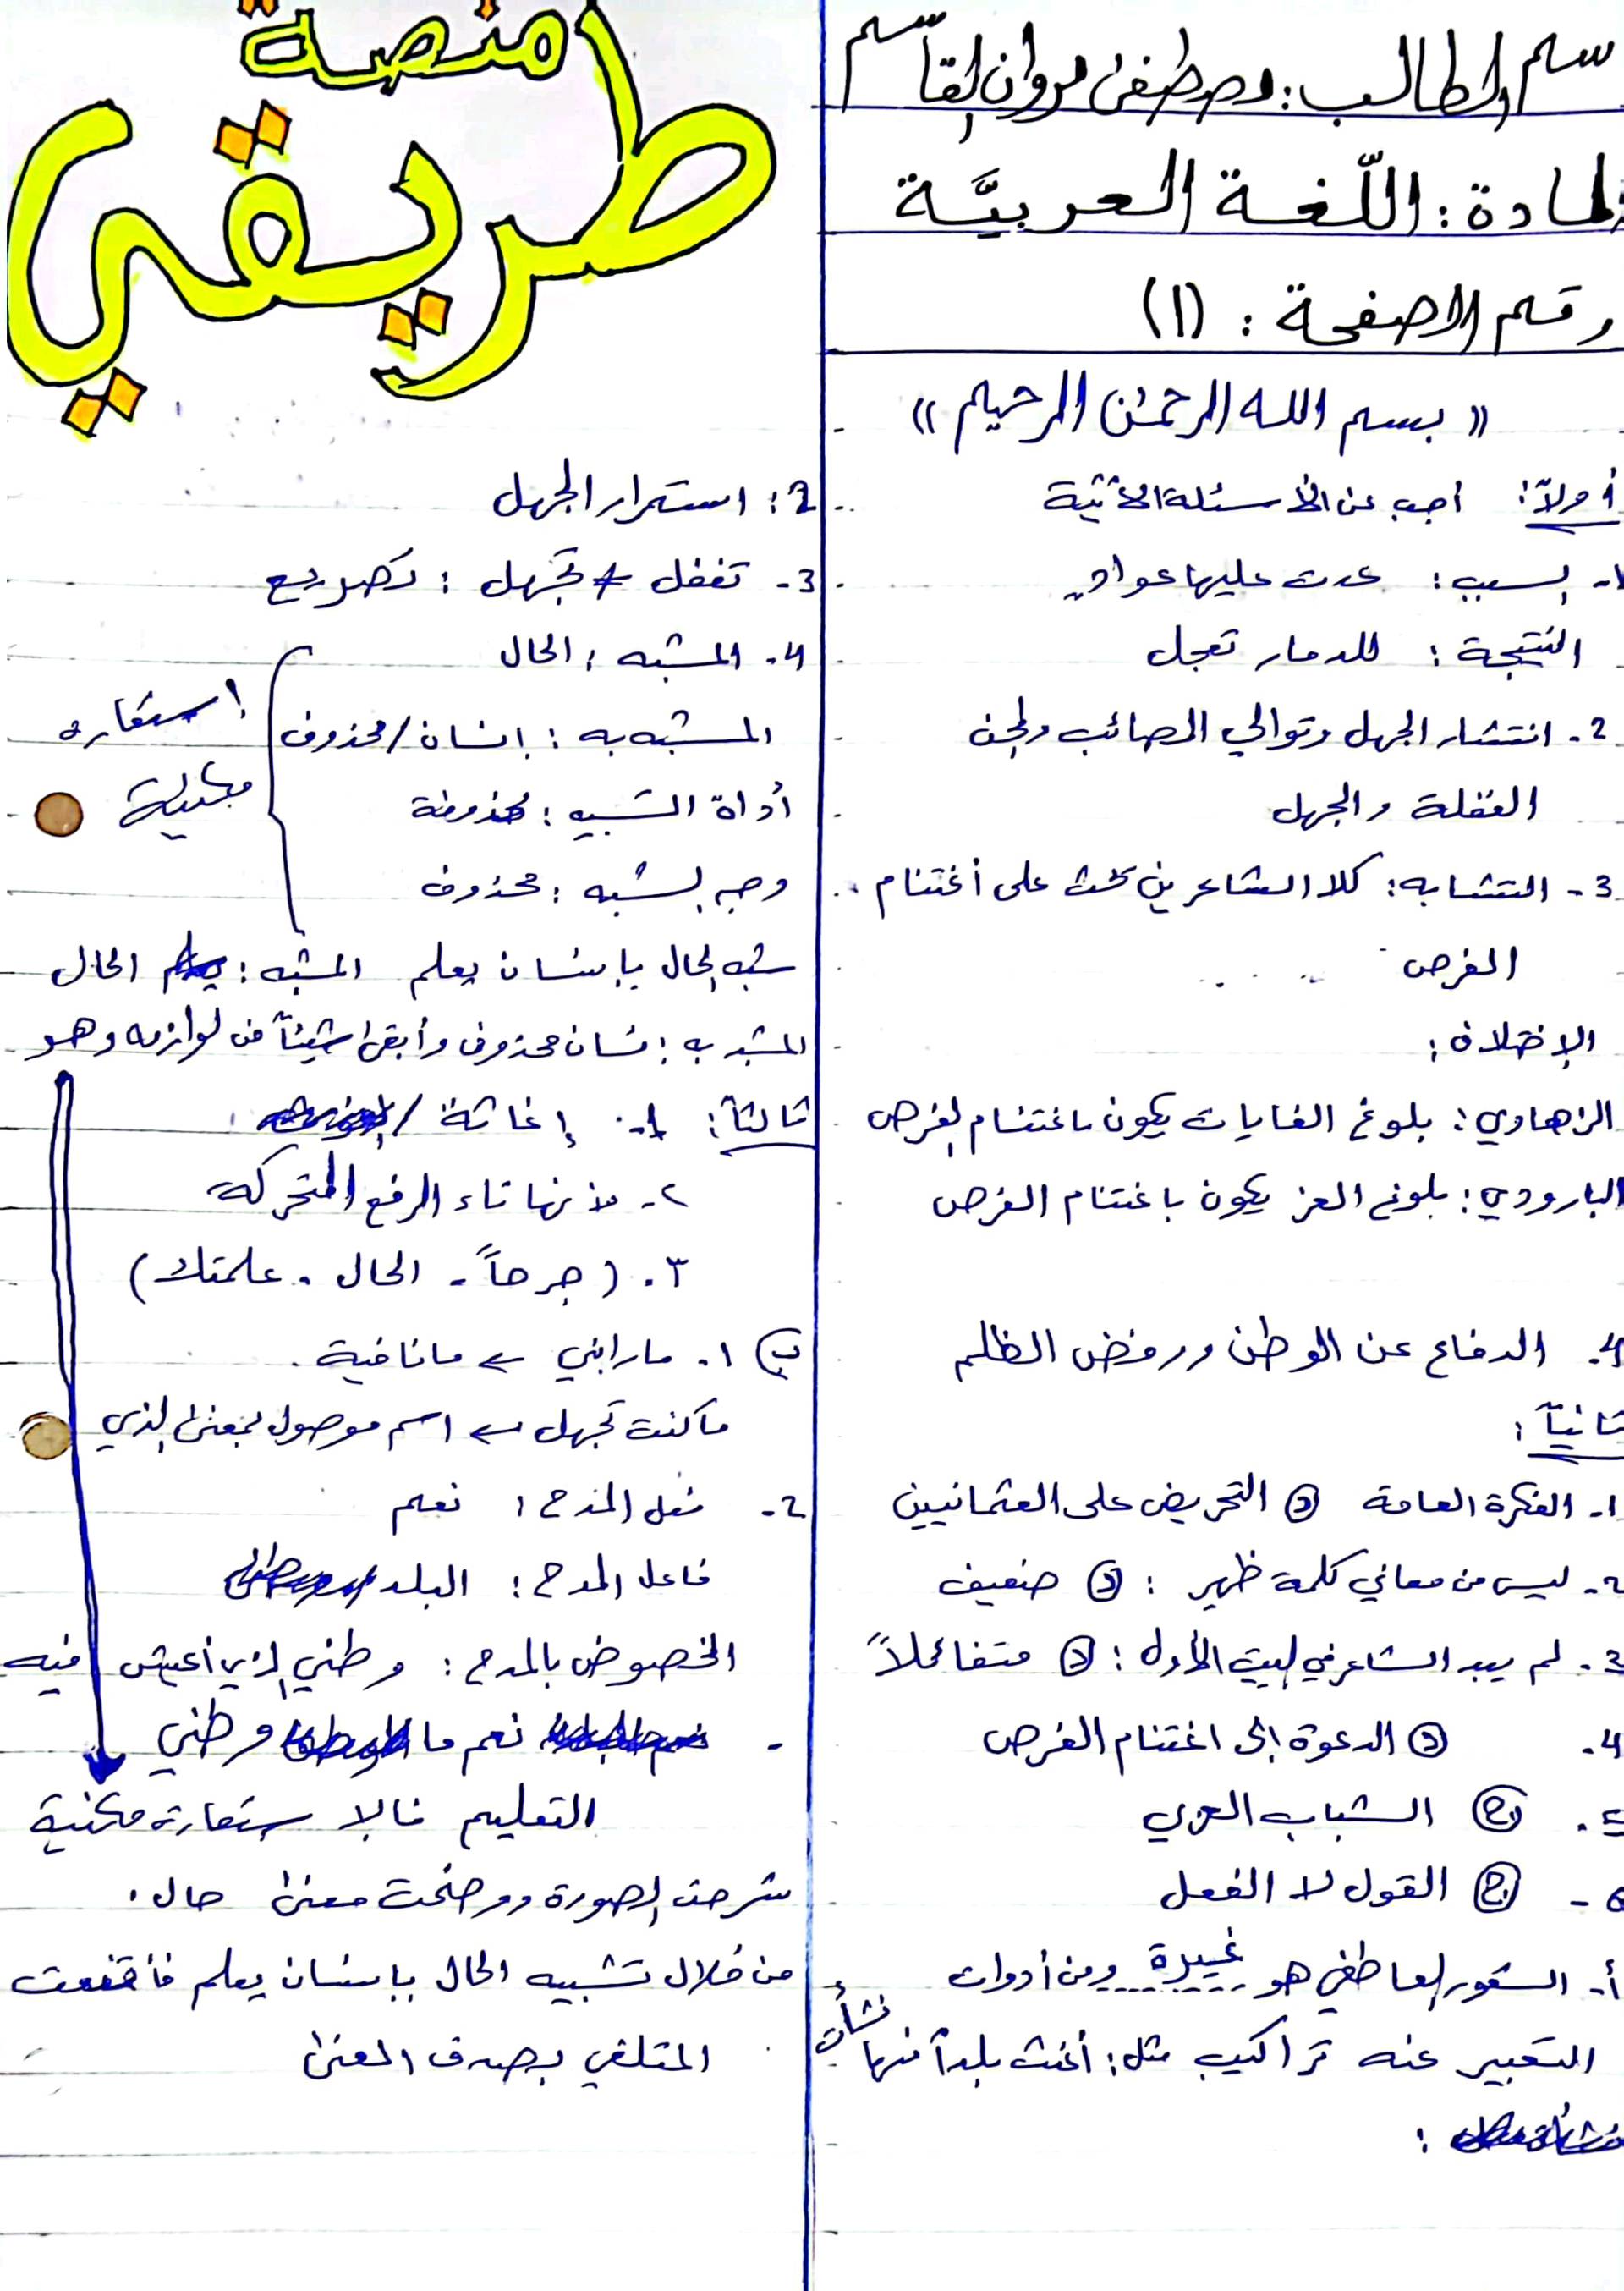 اسم الطالب: مصطفى مروان القاسم
المادة: اللّغة العربيَّة
رقم الصفحة: (١)
« بسم الله الرحمن الرحيم »
أولاً: اجب عن الأسئلة الآتية
1- السبب: عدت عليها عوادٍ
النتيجة: للدمار تعجل
2- انتشار الجهل وتوالي المصائب والمحن
الغفلة والجهل
3- التشابه: كلا الشاعرين يحث على أغتنام
الفرص
الإختلاف:
الزهاوي: بلوغ الغايات يكون باغتنام الفرص
البارودي: بلوغ العز يكون باغتنام الفرص
4. الدفاع عن الوطن ورفض الظلم
ثانياً:
1- الفكرة العامة التحريض على العثمانيين
2- ليس من معاني كلمة ظهير: ضعيف
3- لم يبد الشاعر في البيت الأول: متفائلاً
4. الدعوة إلى اغتنام الفرص
5. الشباب العربي
6- القول لا الفعل
أ- الشعور العاطفي هو غيرة ومن أدوات
التعبير عنه تراكيب مثل: أغث بلداً منها نشأت
منصة
طريقي
2: استمرار الجهل
3- تغفل + تجهل: تصريع
4. المشبه: الحال
المشبه به: إنسان/محذوف
أداة التشبيه: محذوفة
وجه الشبه: محذوف
استعارة
مكنية
شبه الحال بإنسان يعلم المشبه: الحال
المشبه به: إنسان محذوف وأبقى شيئاً من لوازمه وهو
ثالثاً: 1- إغاثة /
٢- لأنها تاء الرفع المتحركة
٣. (جرحاً - الحال - علمتك)
ب) ١. ما رابني ← ما نافية.
ما كنت تجهل ← اسم موصول بمعنى الذي
2- فعل المدح: نعم
فاعل المدح: البلد
الخصوص بالمدح: وطني الذي أعيش فيه
- نعم ما وطني
التعليم فالاستعارة مكنية
شرحت الصورة ووضحت معنى حال.
من خلال تشبيه الحال بإنسان يعلم فأقنعت
المتلقي بصدق المعنى